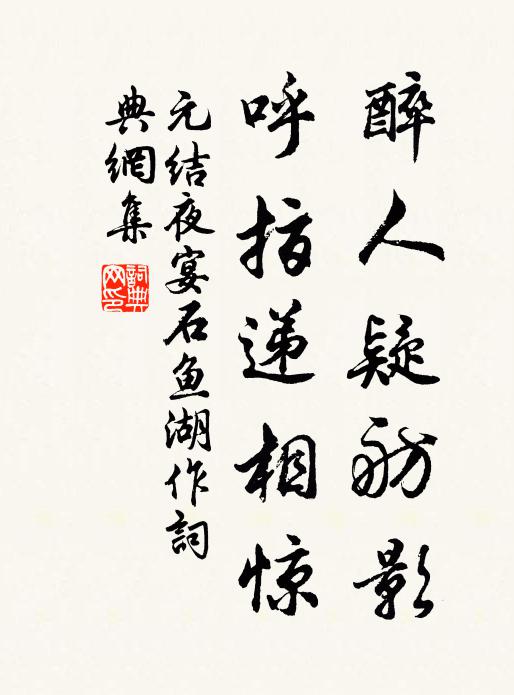 醉人疑舫影
呼指递相惊
元结夜宴石鱼湖作词
典網集
詞典网印